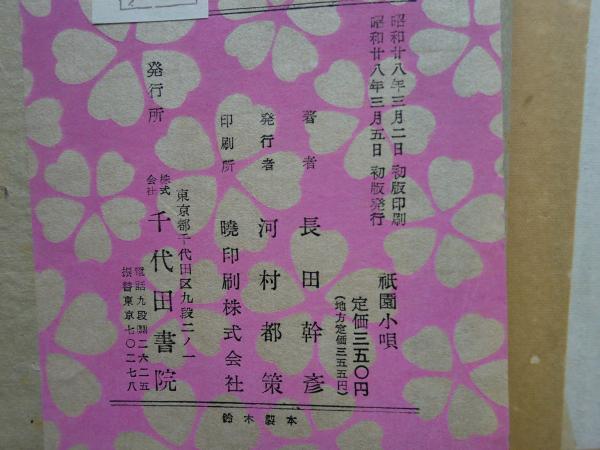 昭和廿八年三月二日 初版印刷
昭和廿八年三月五日 初版発行
祇園小唄
定価三五〇円
(地方定価三五五円)
著者 長田幹彦
発行者 河村都策
印刷所 曉印刷株式会社
発行所
東京都千代田区九段二ノ一
株式会社 千代田書院
電話九段㉝二六二五
振替東京七〇二七八
鈴木製本